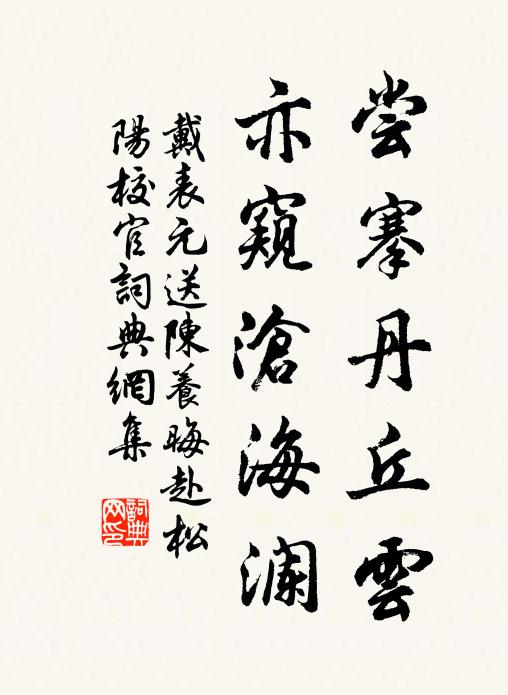 尝搴丹丘雲
亦窺滄海澜
戴表元送陳養晦赴松
陽校官詞典網集
詞典
网印